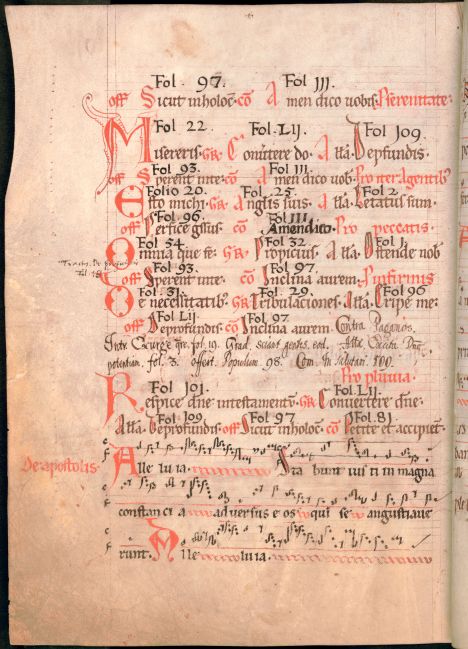 Fol. 97. Fol III.
off Sicut inholoc̄. cō Amen dico vobis. Pserenitate:
Fol 22. Fol. LIJ. Fol 109.
Misereris. GR. Comittere do. Alła. Depfundis.
Fol 93. Fol III.
off Sperent inte. cō Amen dico vob. Pro iter agentib
Folio 20. Fol. 25. Fol 2.
Esto michi. GR. Anglis suis. Alła. Letatus sum.
Fol. 96. Fol. III.
off Perfice gssus. cō Amendico. Pro peccatis.
Fol 34. Fol 32. Fol J.
Omnia que fe. GR. Propicius. Alła. Ostende nob
Fol 93. Fol 97.
off Sperent inte. cō Inclina aurem. Pinfirmis
Fol. 31. Fol. 29. Fol 90
De necessitatib. GR. Tribulaciones. Alła. Eripe me:
Fol LIJ Fol 97
off Deprofundis. cō Inclina aurem. Contra Paganos.
Intr. Exurge qre. fol. 19. Grad. sciant gentes. eod. Alla Excita Dnē
potentiam. fol. 3. offert. Populum 98. Com. In salutari. 100.
Pro pluvia.
Fol 101. Fol. LIJ.
Respice dn̄e intestamentū. GR. Convertere dn̄e.
Fol 109. Fol 97 Fol. 81.
Alła. Deprofundis. off Sicut inholoc. cō Petite et accipiet.
De apostolis. Alle luia. Sta bunt iusti in magna
constanci a adversus eos qui se angustiave
runt. Alle luia.